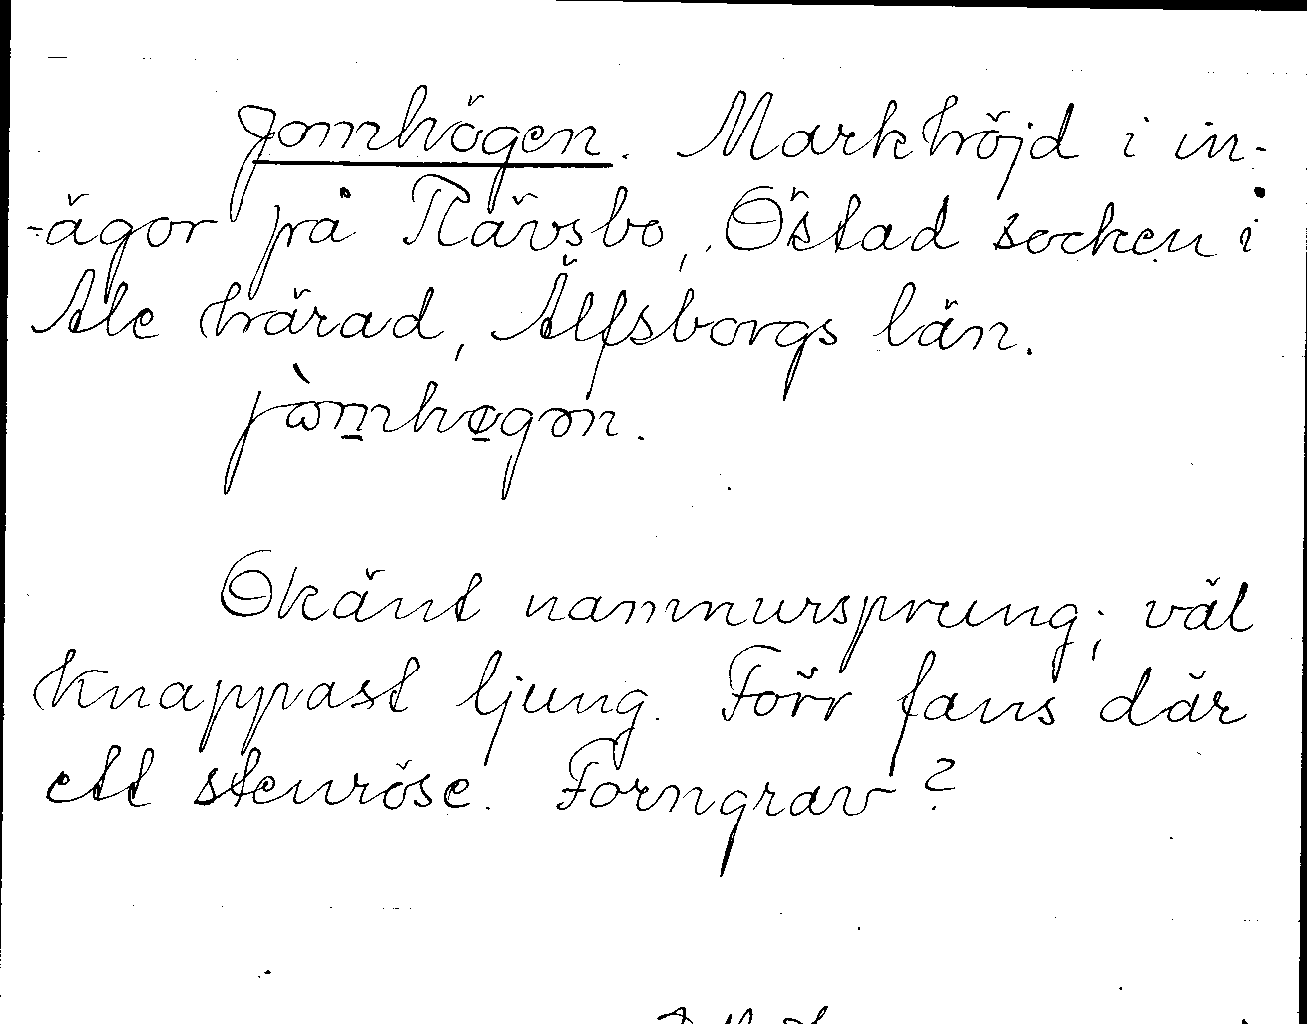 Jomhögen. Markhöjd i in-
-ägor på Rävsbo, Östad socken i
Ale härad, Älfsborgs län.
jòm̲hø̲gən.
Okänt namnursprung; väl
knappast ljung. Förr fans där
ett stenröse. Forngrav?